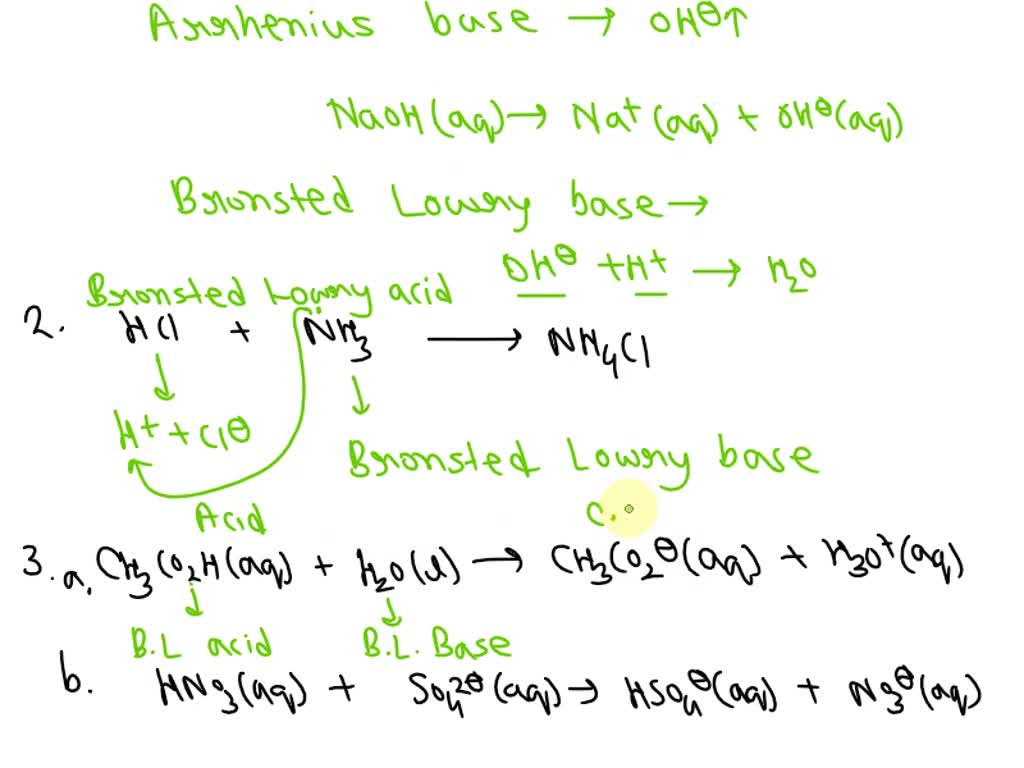 Arrhenius base → OH⊖↑
NaOH(aq) → Na⁺(aq) + OH⊖(aq)
Bronsted Lowry base →
OH⊖ + H⁺ → H₂O
Bronsted Lowry acid
2. HCl + NH₃ → NH₄Cl
H⁺ + Cl⊖
Bronsted Lowry base
Acid C.
3. a. CH₃CO₂H(aq) + H₂O(l) → CH₃CO₂⊖(aq) + H₃O⁺(aq)
B.L acid B.L. Base
b. HN₃(aq) + SO₄²⊖(aq) → HSO₄⊖(aq) + N₃⊖(aq)